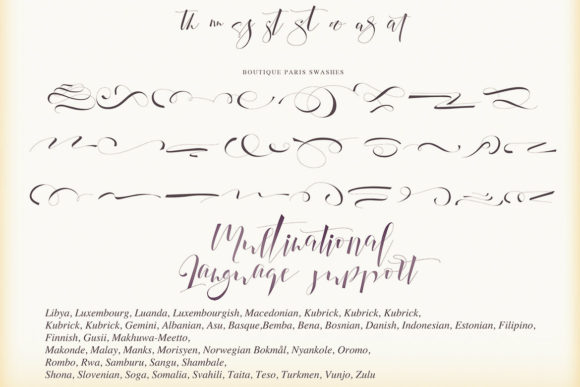 th
st st
as at
BOUTIQUE PARIS SWASHES
Multinational
Language support
Libya, Luxembourg, Luanda, Luxembourgish, Macedonian, Kubrick, Kubrick, Kubrick,
Kubrick, Kubrick, Gemini, Albanian, Asu, Basque,Bemba, Bena, Bosnian, Danish, Indonesian, Estonian, Filipino,
Finnish, Gusii, Makhuwa-Meetto,
Makonde, Malay, Manks, Morisyen, Norwegian Bokmål, Nyankole, Oromo,
Rombo, Rwa, Samburu, Sangu, Shambale,
Shona, Slovenian, Soga, Somalia, Svahili, Taita, Teso, Turkmen, Vunjo, Zulu